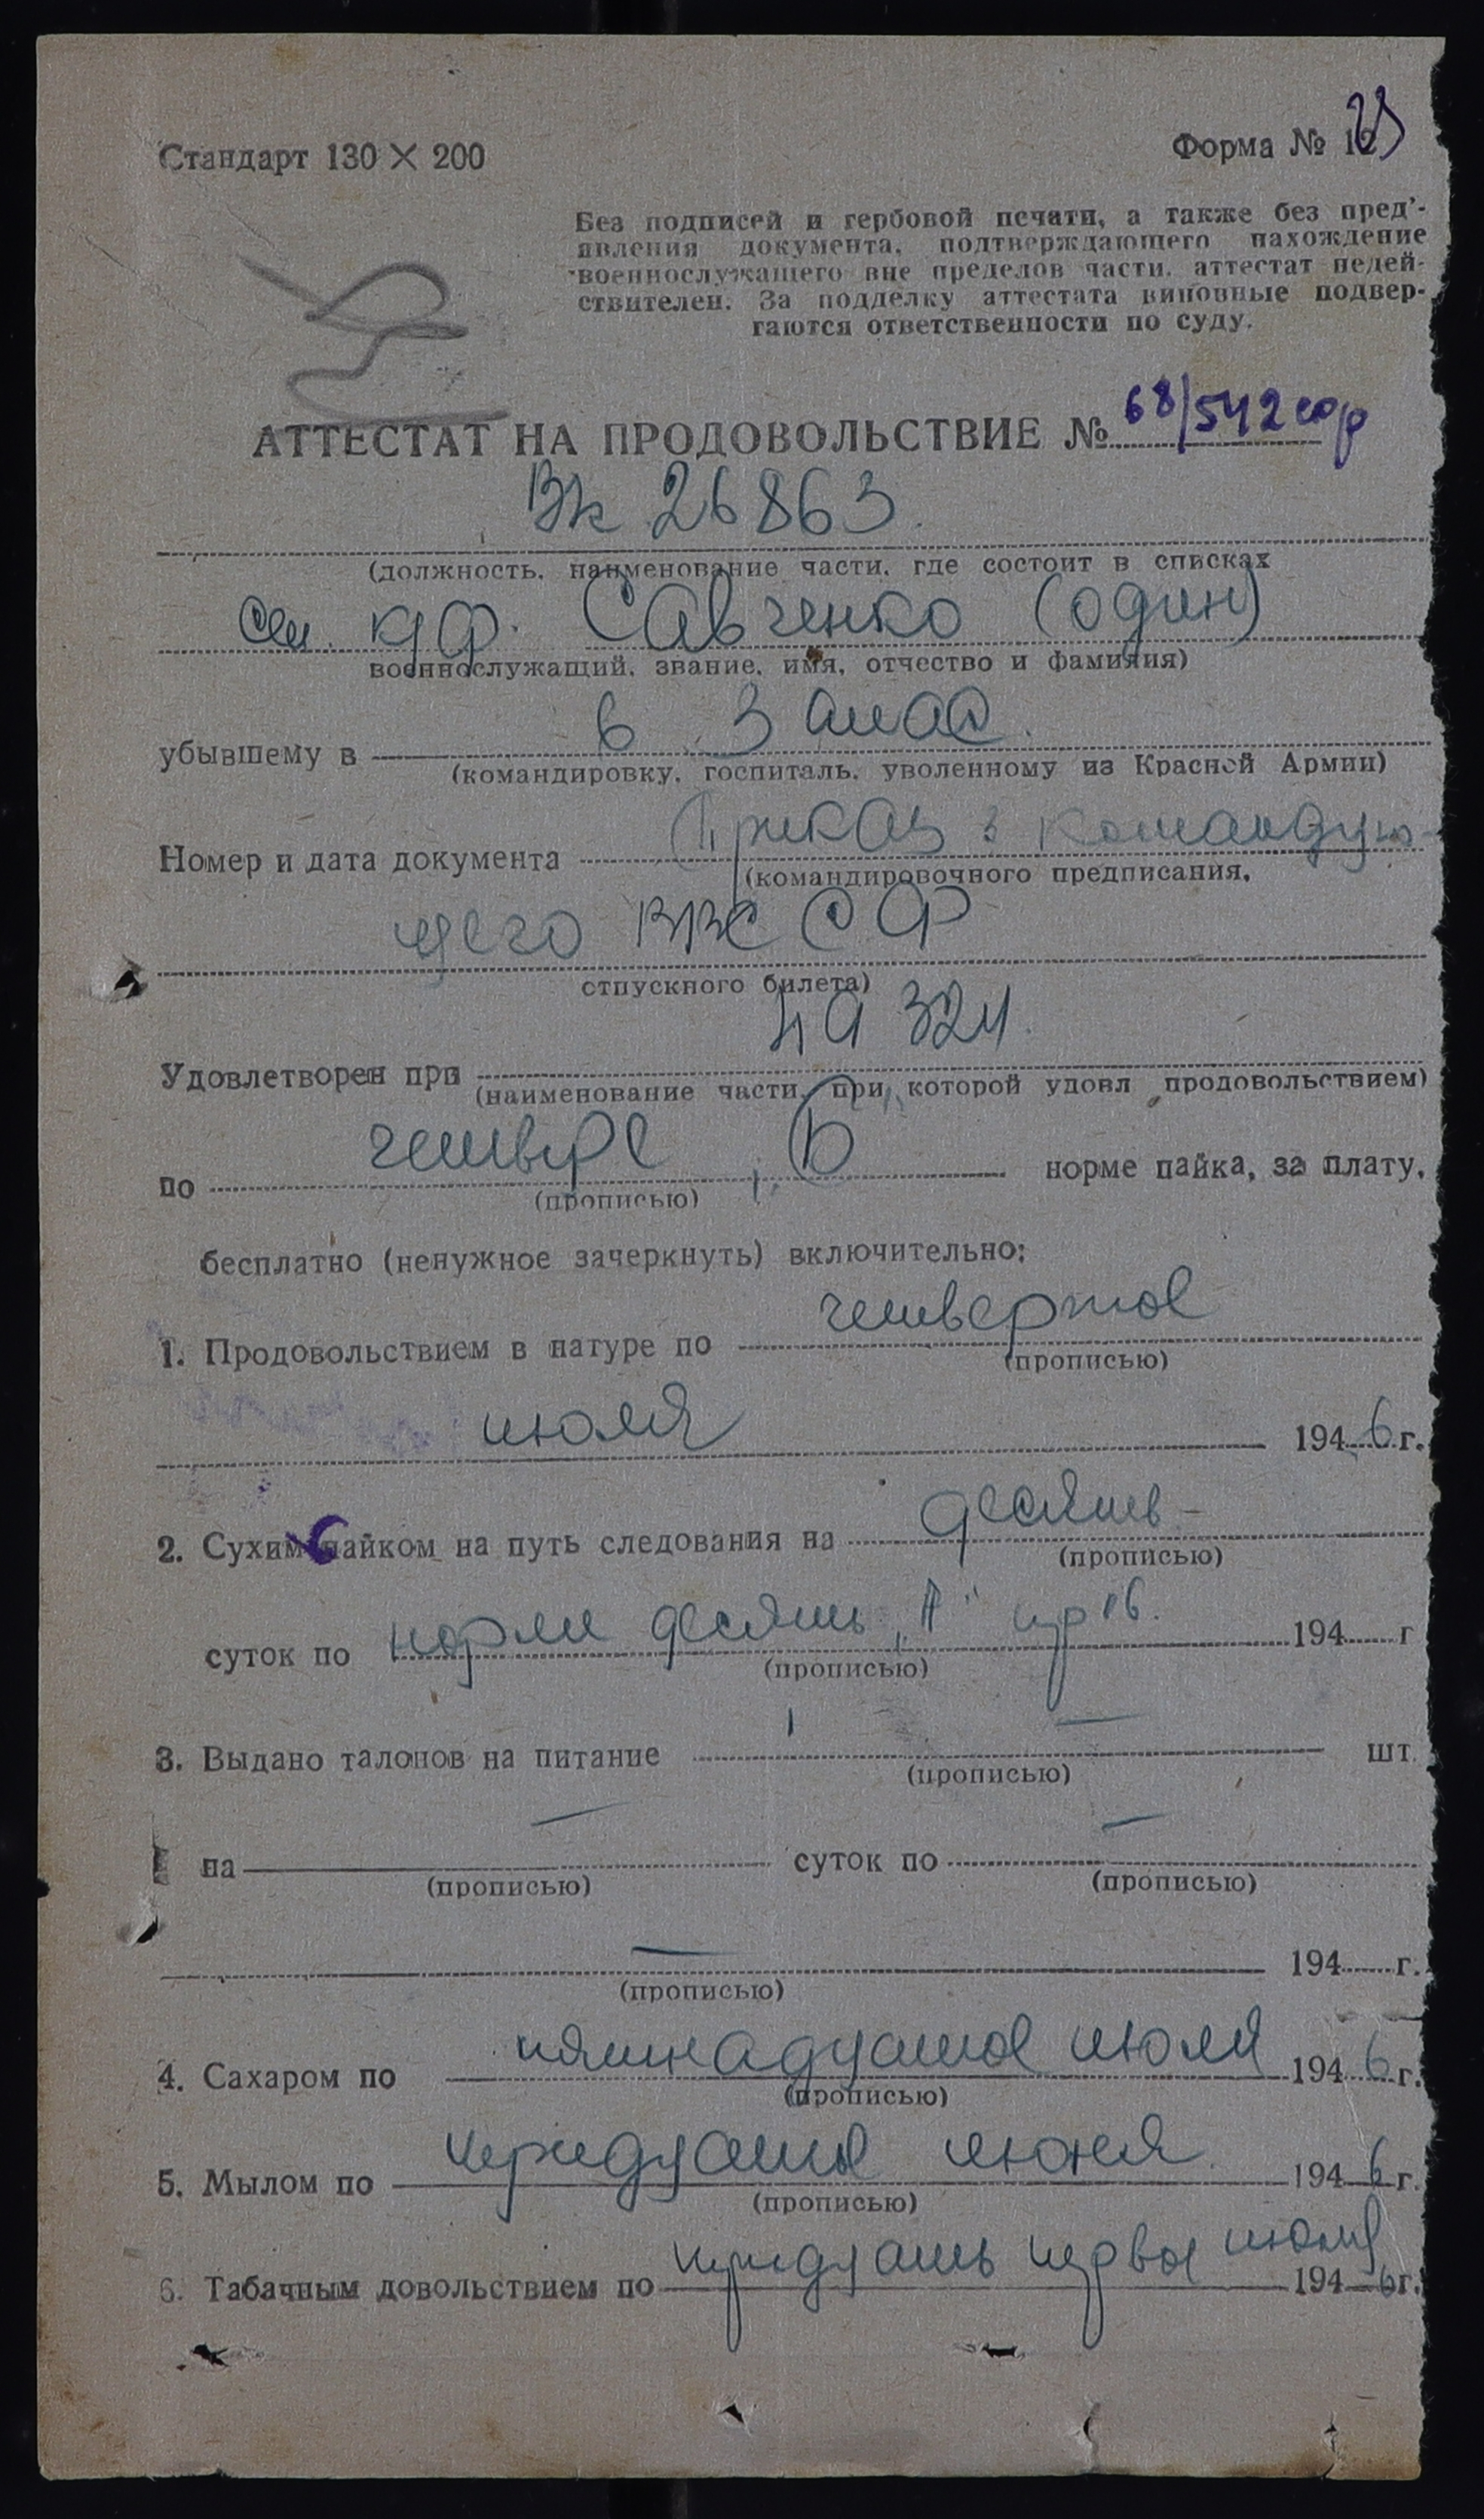 Стандарт 130 × 200
Форма № 12
23
Без подписей и гербовой печати, а также без пред'-
явления документа, подтверждающего нахождение
военнослужащего вне пределов части, аттестат недей-
ствителен. За подделку аттестата виновные подвер-
гаются ответственности по суду.
АТТЕСТАТ НА ПРОДОВОЛЬСТВИЕ № 68/542
26863
(должность, наименование части, где состоит в списках
Савченко (один)
военнослужащий, звание, имя, отчество и фамилия)
убывшему в в 3
(командировку, госпиталь, уволенному из Красной Армии)
Номер и дата документа Приказ Командую-
(командировочного предписания,
щего ВВС СФ
отпускного билета)
Удовлетворен при
(наименование части, при которой удовл продовольствием)
по четыре Б норме пайка, за плату,
(прописью)
бесплатно (ненужное зачеркнуть) включительно:
1. Продовольствием в натуре по четвертое
(прописью)
июля 1946 г.
2. Сухим пайком на путь следования на десять -
(прописью)
суток по норме десять „А" 194 г
(прописью)
3. Выдано талонов на питание — шт.
(прописью)
на — суток по —
(прописью) (прописью)
— 194 г.
(прописью)
4. Сахаром по пятнадцатое июля 1946 г.
(прописью)
5. Мылом по тридцатое июня 1946 г.
(прописью)
6. Табачным довольствием по тридцать первое июля 1946 г.